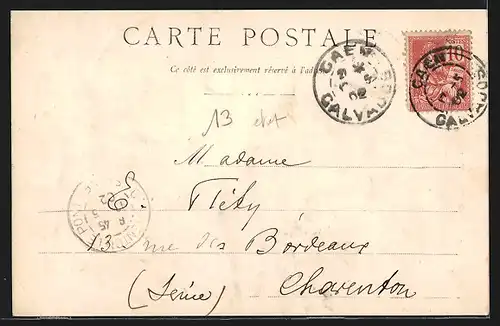 CARTE POSTALE
Ce côté est exclusivement réservé à l'adresse
CAEN
CALVADOS
10
CAEN
CALVADOS
13
Madame
Fléty
13 rue des Bordeaux
(Seine) Charenton